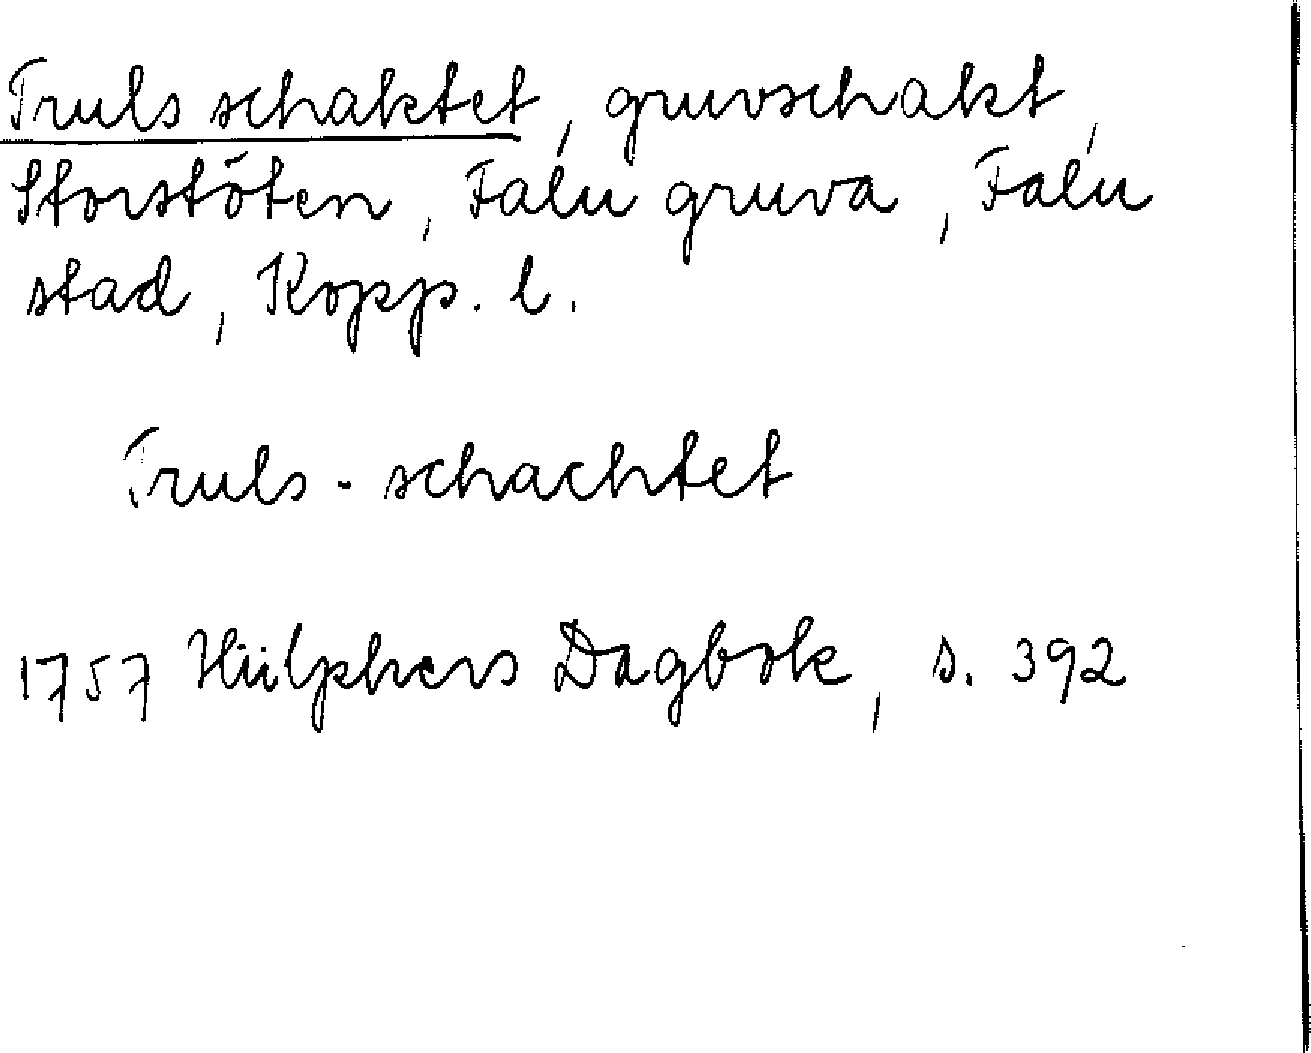 Truls schaktet, gruvschakt,
Storstöten, Falu gruva, Falu
stad, Kopp. l.
Truls-schachtet
1757 Hülphers Dagbok, s. 392